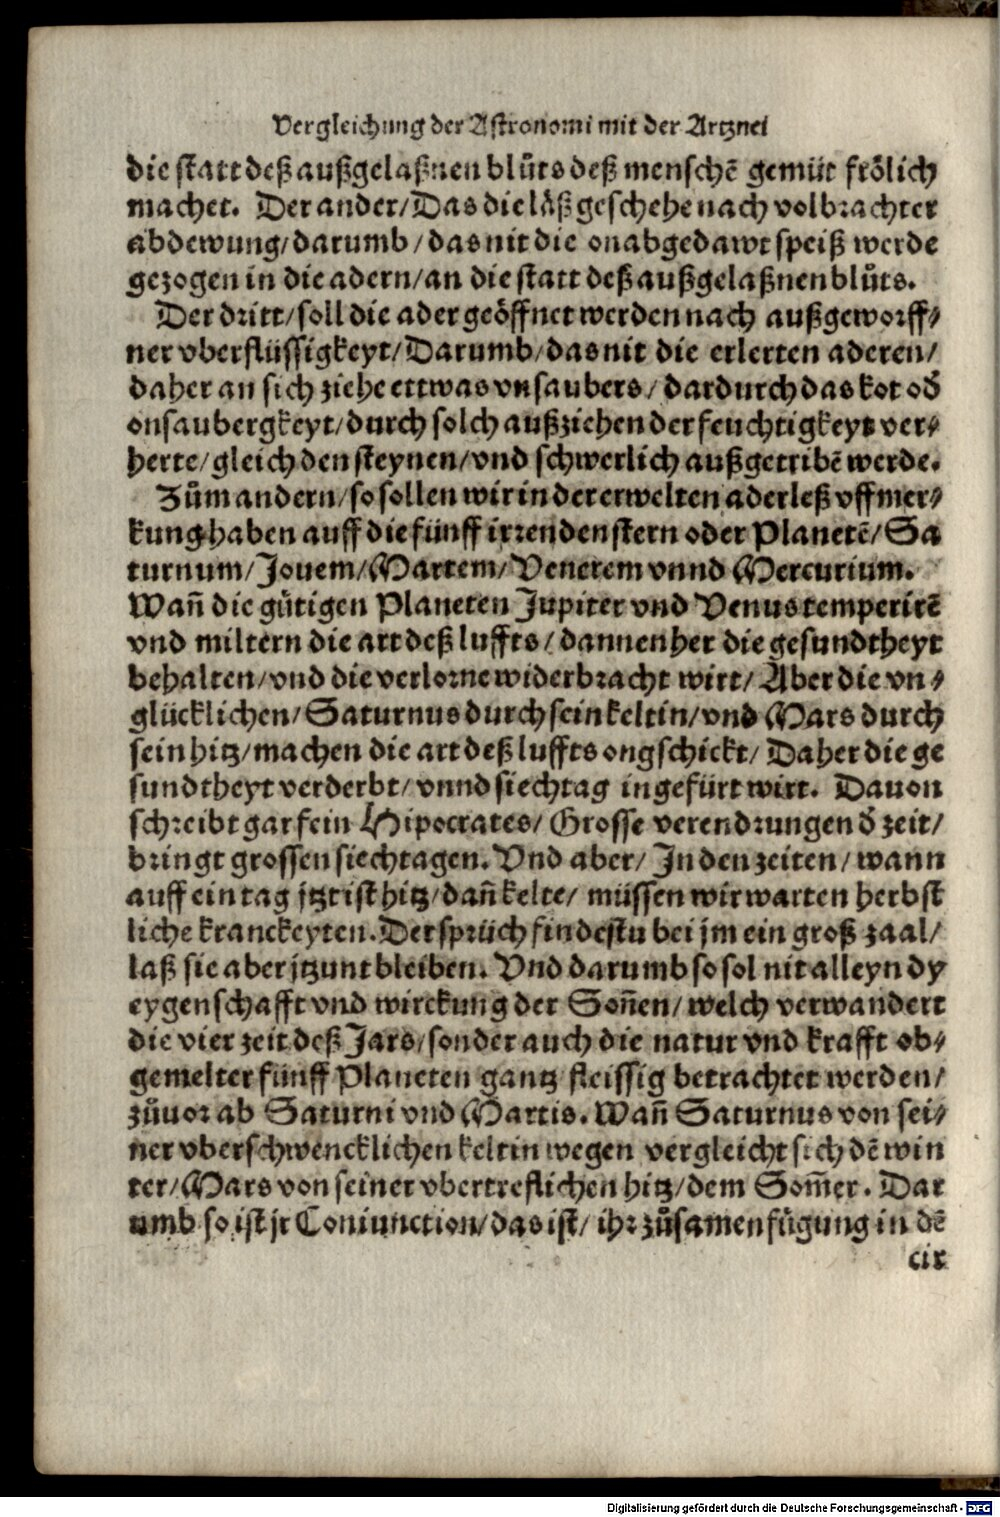 Vergleichung der Astronomi mit der Artznei
die statt deß außgelaßnen blůts deß menschē gemüt frölich
machet. Der ander/Das die läß geschehe nach volbrachter
abdewung/darumb/das nit die onabgedawt speiß werde
gezogen in die adern/an die statt deß außgelaßnen blůts.
Der dritt/soll die ader geöffnet werden nach außgeworff⸗
ner vberflüssigkeyt/Darumb/das nit die erlerten aderen/
daher an sich ziehe ettwas vnsaubers/dardurch das kot od̕
onsaubergkeyt/durch solch außziehen der feuchtigkeyt ver⸗
herte/gleich den steynen/vnd schwerlich außgetribē werde.
Zům andern/so sollen wir in der erwelten aderleß vffmer⸗
kung haben auff die fünff irrenden stern oder Planetē/Sa
turnum/Jouem/Martem/Venerem vnnd Mercurium.
Wañ die gütigen Planeten Jupiter vnd Venus temperirē
vnd miltern die art deß luffts/dannenher die gesundtheyt
behalten/vnd die verlorne widerbracht wirt/Aber die vn⸗
glücklichen/Saturnus durch sein keltin/vnd Mars durch
sein hitz/machen die art deß luffts ongschickt/Daher die ge
sundtheyt verderbt/vnnd siechtag ingefürt wirt. Dauon
schreibt gar fein Hipocrates/Grosse verendrungen d̕ zeit/
bringt grossen siechtagen. Vnd aber/In den zeiten/wann
auff ein tag jtzt ist hitz/dañ kelte/müssen wir warten herbst
liche kranckeyten. Der sprüch findestu bei jm ein groß zaal/
laß sie aber jtzunt bleiben. Vnd darumb so sol nit alleyn dy
eygenschafft vnd wirckung der Soñen/welch verwandert
die vier zeit deß Jars/sonder auch die natur vnd krafft ob⸗
gemelter fünff Planeten gantz fleissig betrachtet werden/
zůuor ab Saturni vnd Martis. Wañ Saturnus von sei⸗
ner vberschwencklichen keltin wegen vergleicht sich dē win
ter/Mars von seiner vbertreflichen hitz/dem Som̄er. Dar
umb so ist jr Coniunction/das ist/ihr zůsamenfügung in dē
cir
Digitalisierung gefördert durch die Deutsche Forschungsgemeinschaft - DFG